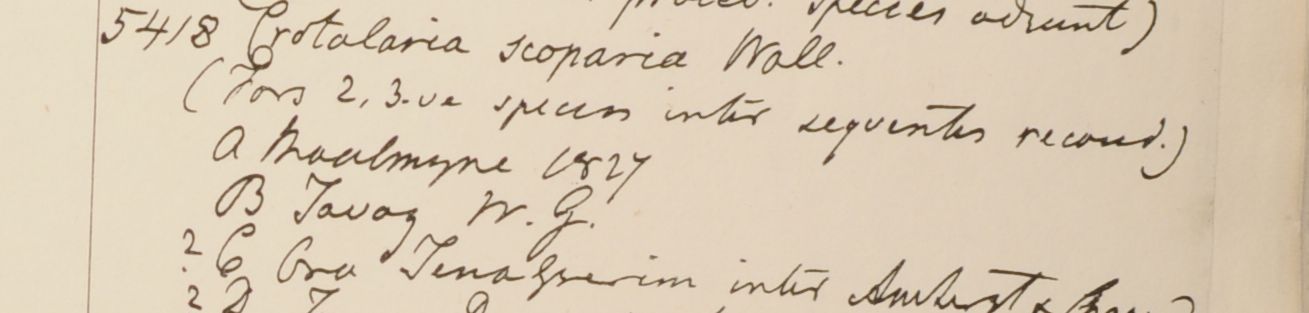 species adsunt)
5418 Crotalaria scoparia Wall.
(Fors 2, 3-ve species inter sequentes recond.)
A Moalmyne 1827
B Tavoy W. G.
? C Ora Tenasserim inter Amherst &
? D